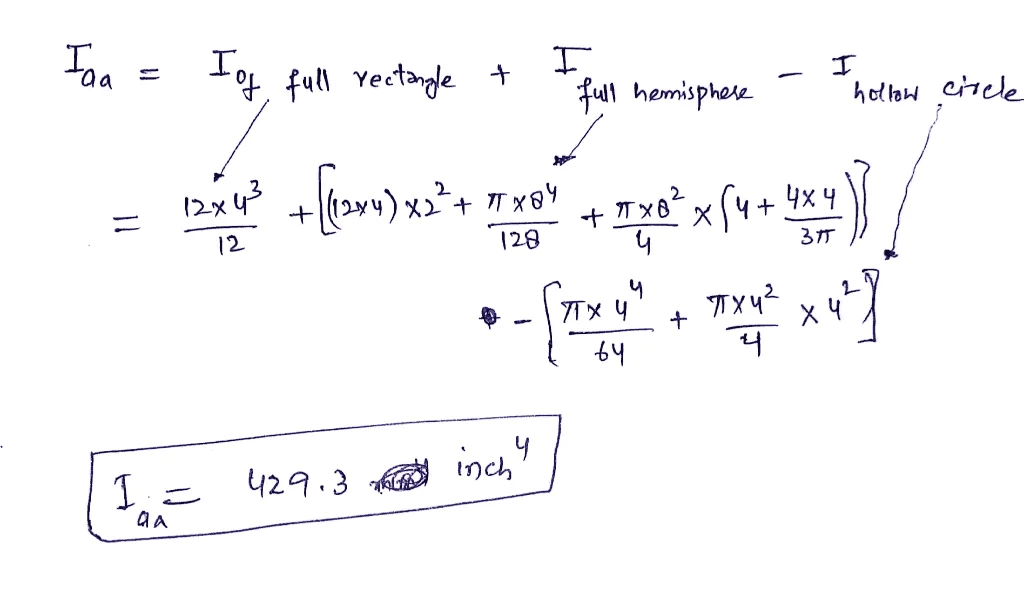 I_aa = I of full rectangle + I full hemisphere - I hollow circle
= 12×4³/12 + [((12×4)×2² + π×8⁴/128 + π×8²/4 × (4 + 4×4/3π))]
- [π×4⁴/64 + π×4²/4 × 4²]
I_aa = 429.3 inch⁴